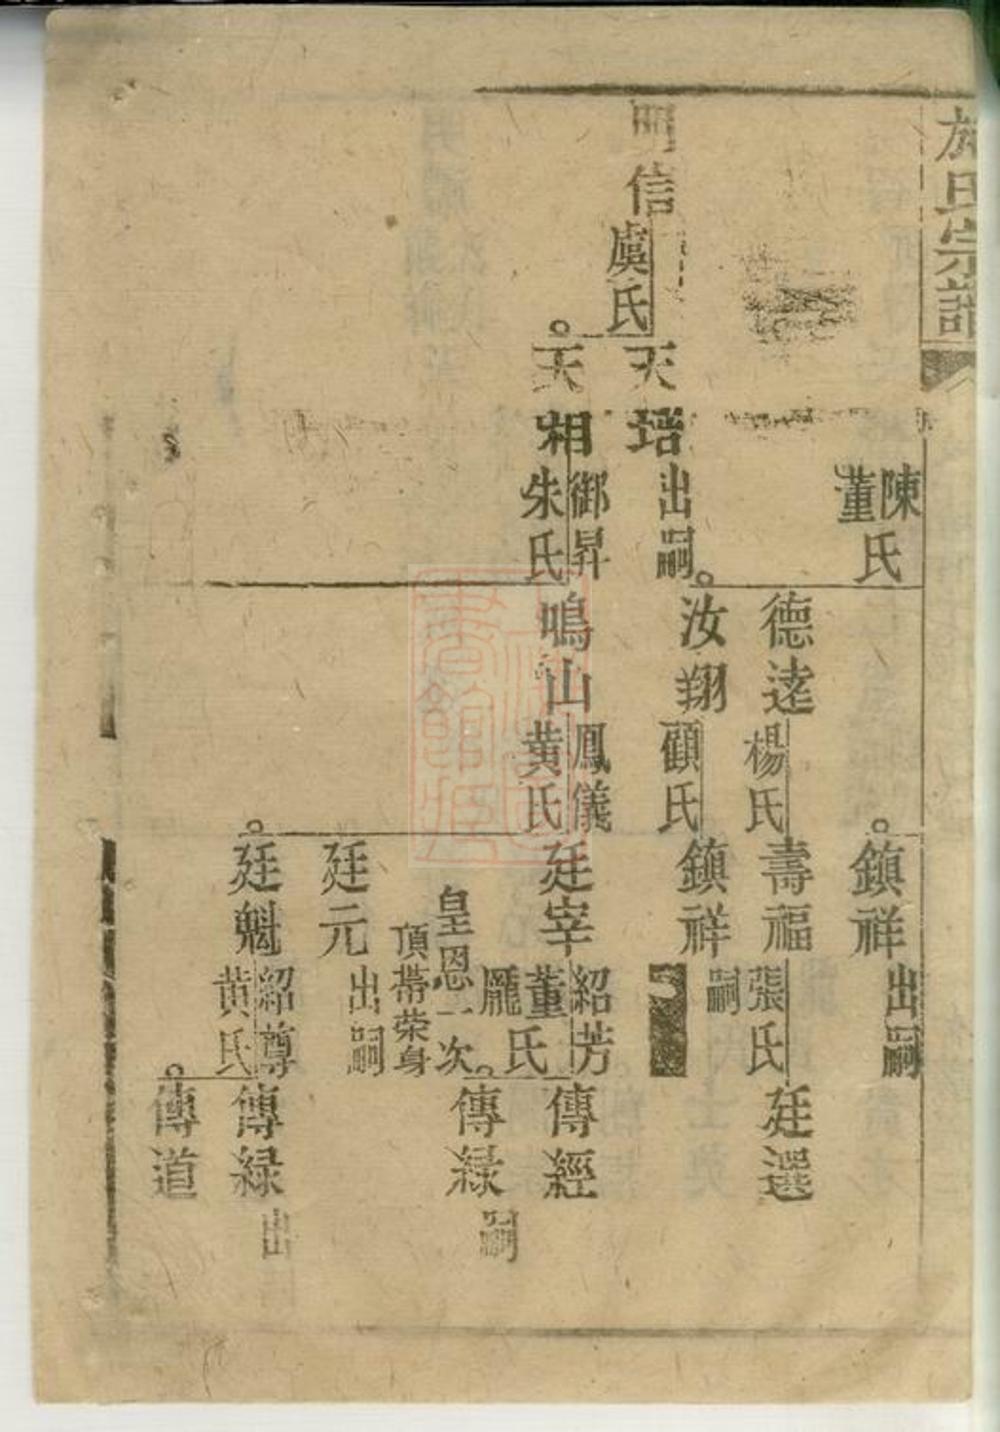 施氏宗譜
陳氏
董
鎮祥
出嗣
德逵
楊氏
壽福
張氏
廷選
汝翔
顧氏
鎮祥
嗣
明信
虞氏
天培
出嗣
天相
御昇
朱氏
鳴山
鳳儀
黄氏
廷宰
紹芳
董氏
龎
皇恩一次
頂帯荣身
傳經
傳緑
嗣
廷元
出嗣
廷魁
紹尊
黄氏
傳緑
出
傳道